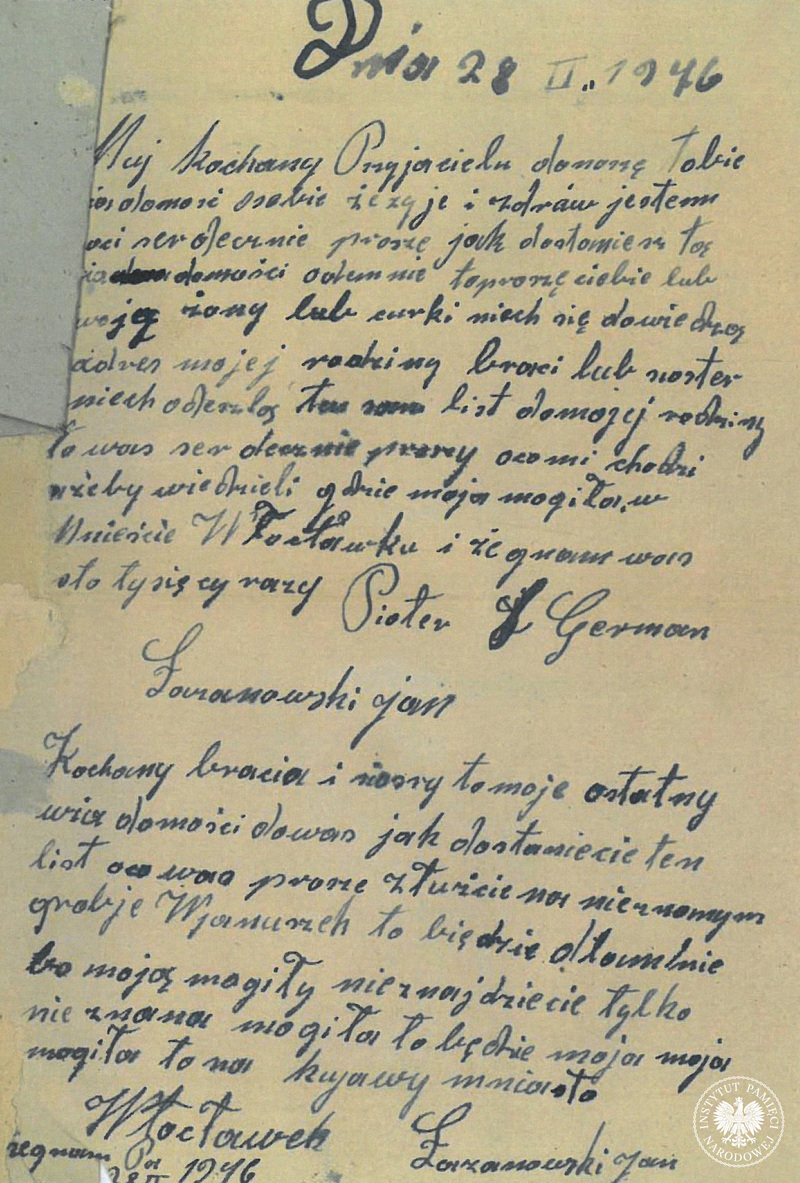 Dnia 28 II. 1946
Muj kochany Przyjacielu donoszę tobie
domość osobie że zyje i zdrów jestem
oci serdecznie proszę jak dostaniesz tą
domości odemnie toproszę ciebie lub
woją żony lub curki niech się dowiedzą
adres mojej rodziny braci lub soster
niech oderzlą ten list domojej rodziny
to was serdecznie proszy ocomi chodzi
ażeby wiedzieli gdzie moja mogiła w
Mnieście Włocławku i żegnam was
sto tysięcy razy Pioter German
Łazanowski jan
Kochany bracia i siosry to moje ostatny
wiadomości dowas jak dostaniecie ten
list oco was prosze złuźcie na nieznomym
grobje Wjanurzek to biędzie dloumlnie
bo moją mogiły nieznajdziecie tylko
nie znana mogiła to będzie moja moja
mogiła to na kujawy mniasto
Włocławek Łazanowski jan
żegnam Pa
28 II 1946
INSTYTUT PAMIĘCI
NARODOWEJ